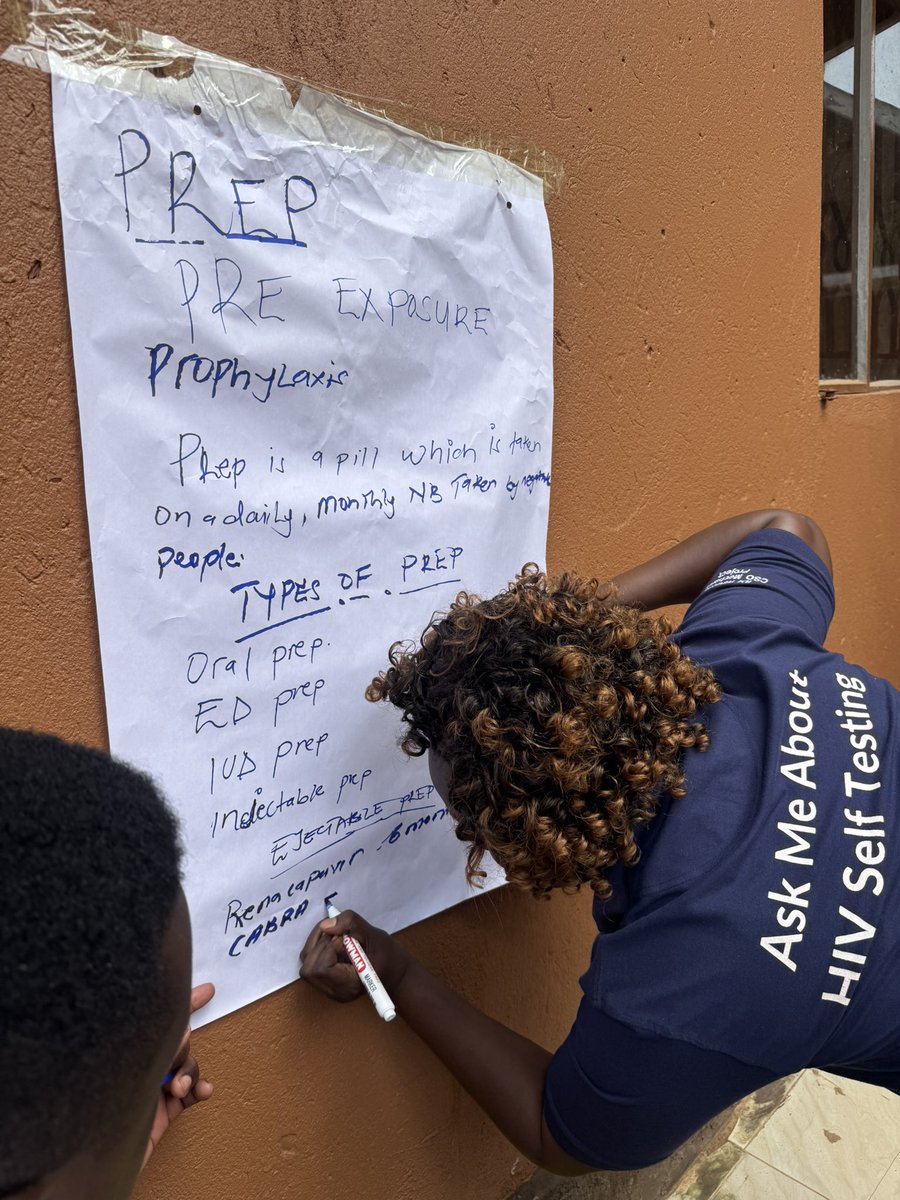 PREP
PRE EXPOSURE
Prophylaxis
Prep is a pill which is taken
on a daily, monthly NB Taken by negative
people.
TYPES OF PREP
Oral prep.
ED prep
IUD prep
Indectable prep
EJECTABLE PREP
Renacapavir
CABRA
Ask Me About
HIV Self Testing
CSO
Project
MARKER